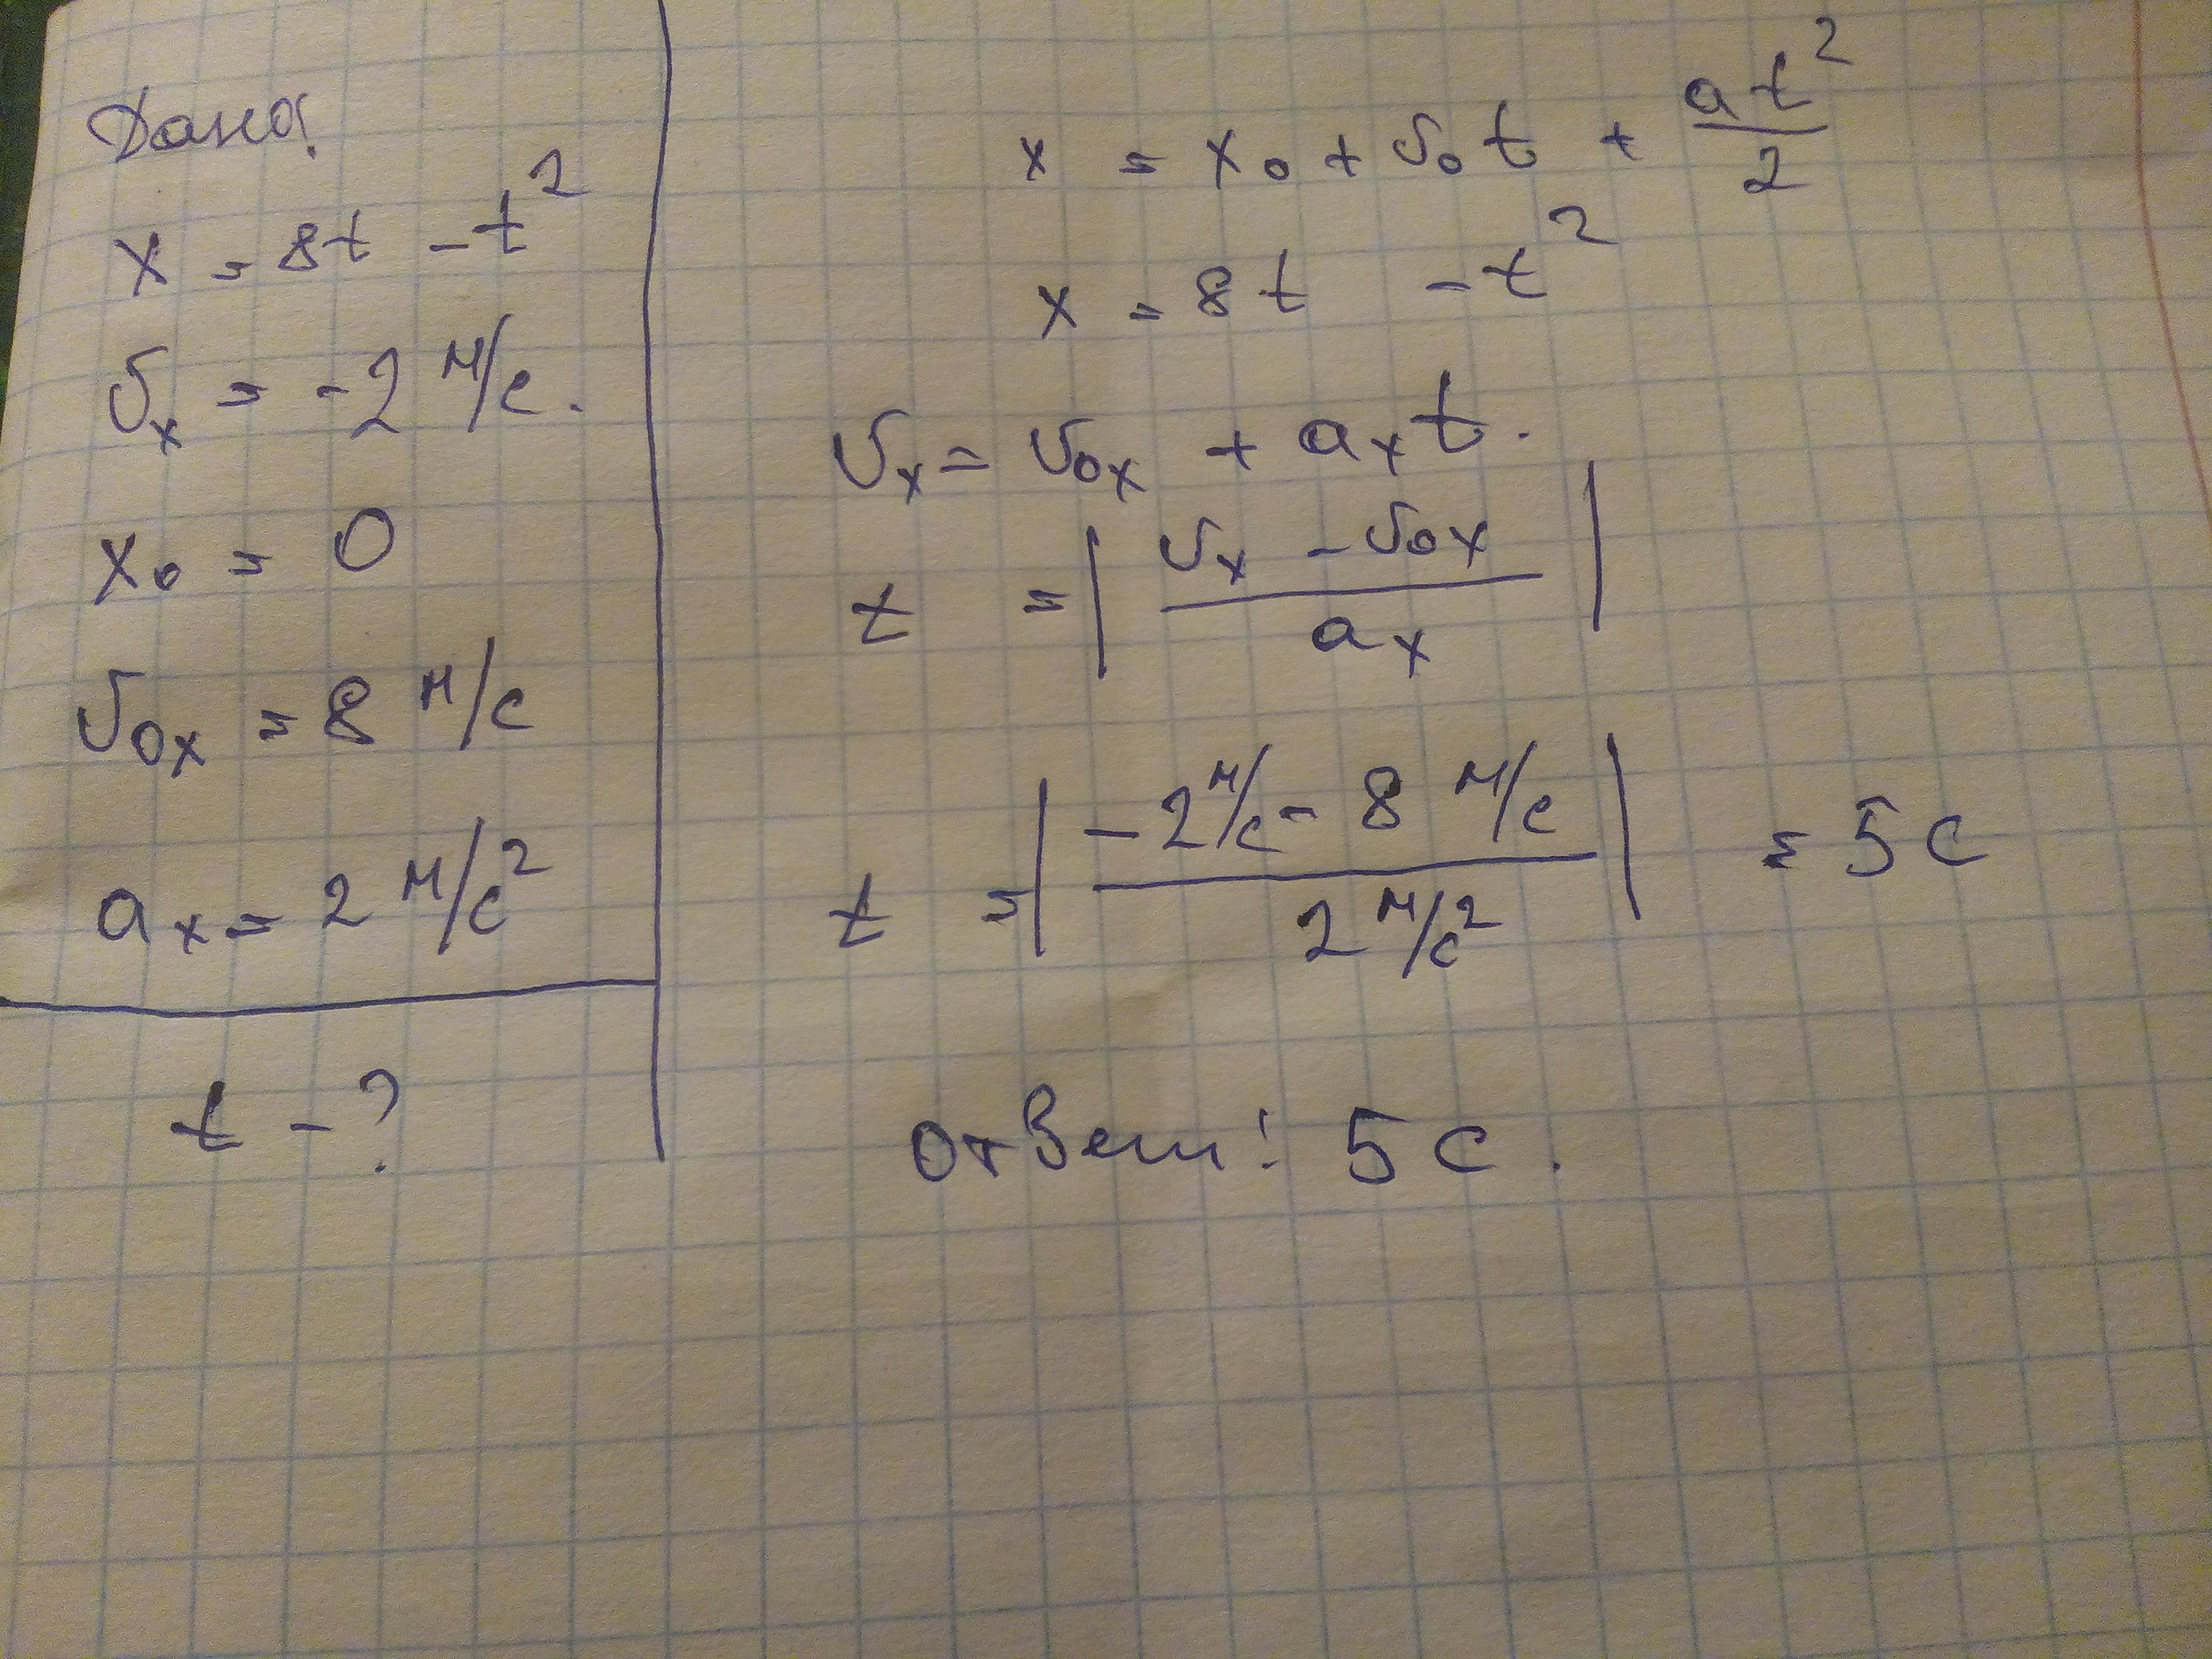 Дано:
x = 8t - t²
υₓ = -2 м/с.
x₀ = 0
υ₀ₓ = 8 м/с
aₓ = 2 м/с²
t - ?
x = x₀ + υ₀t + at²/2
x = 8t - t²
υₓ = υ₀ₓ + aₓt.
t = |(υₓ - υ₀ₓ)/aₓ|
t = |(-2 м/с - 8 м/с)/(2 м/с²)| = 5 с
Ответ: 5 с.